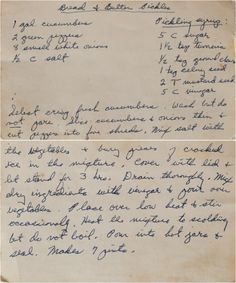 Bread & Butter Pickles
1 gal cucumbers
2 green peppers
8 small white onions
½ C salt
Pickling syrup:
5 C sugar
1½ tsp Tumeric
½ tsp ground cloves
1 tsp celery seed
2 T mustard seed
5 C vinegar
Select crisp fresh cucumbers. Wash but do
not pare. Slice cucumbers & onions thin &
cut peppers into fine shreds. Mix salt with
the vegetables & bury pieces of cracked
ice in the mixture, cover with lid &
let stand for 3 hrs. Drain thoroughly. Mix
dry ingredients with vinegar & pour over
vegetables. Place over low heat & stir
occasionally. Heat the mixture to scalding
but do not boil. Pour into hot jars &
seal. Makes 7 pints.